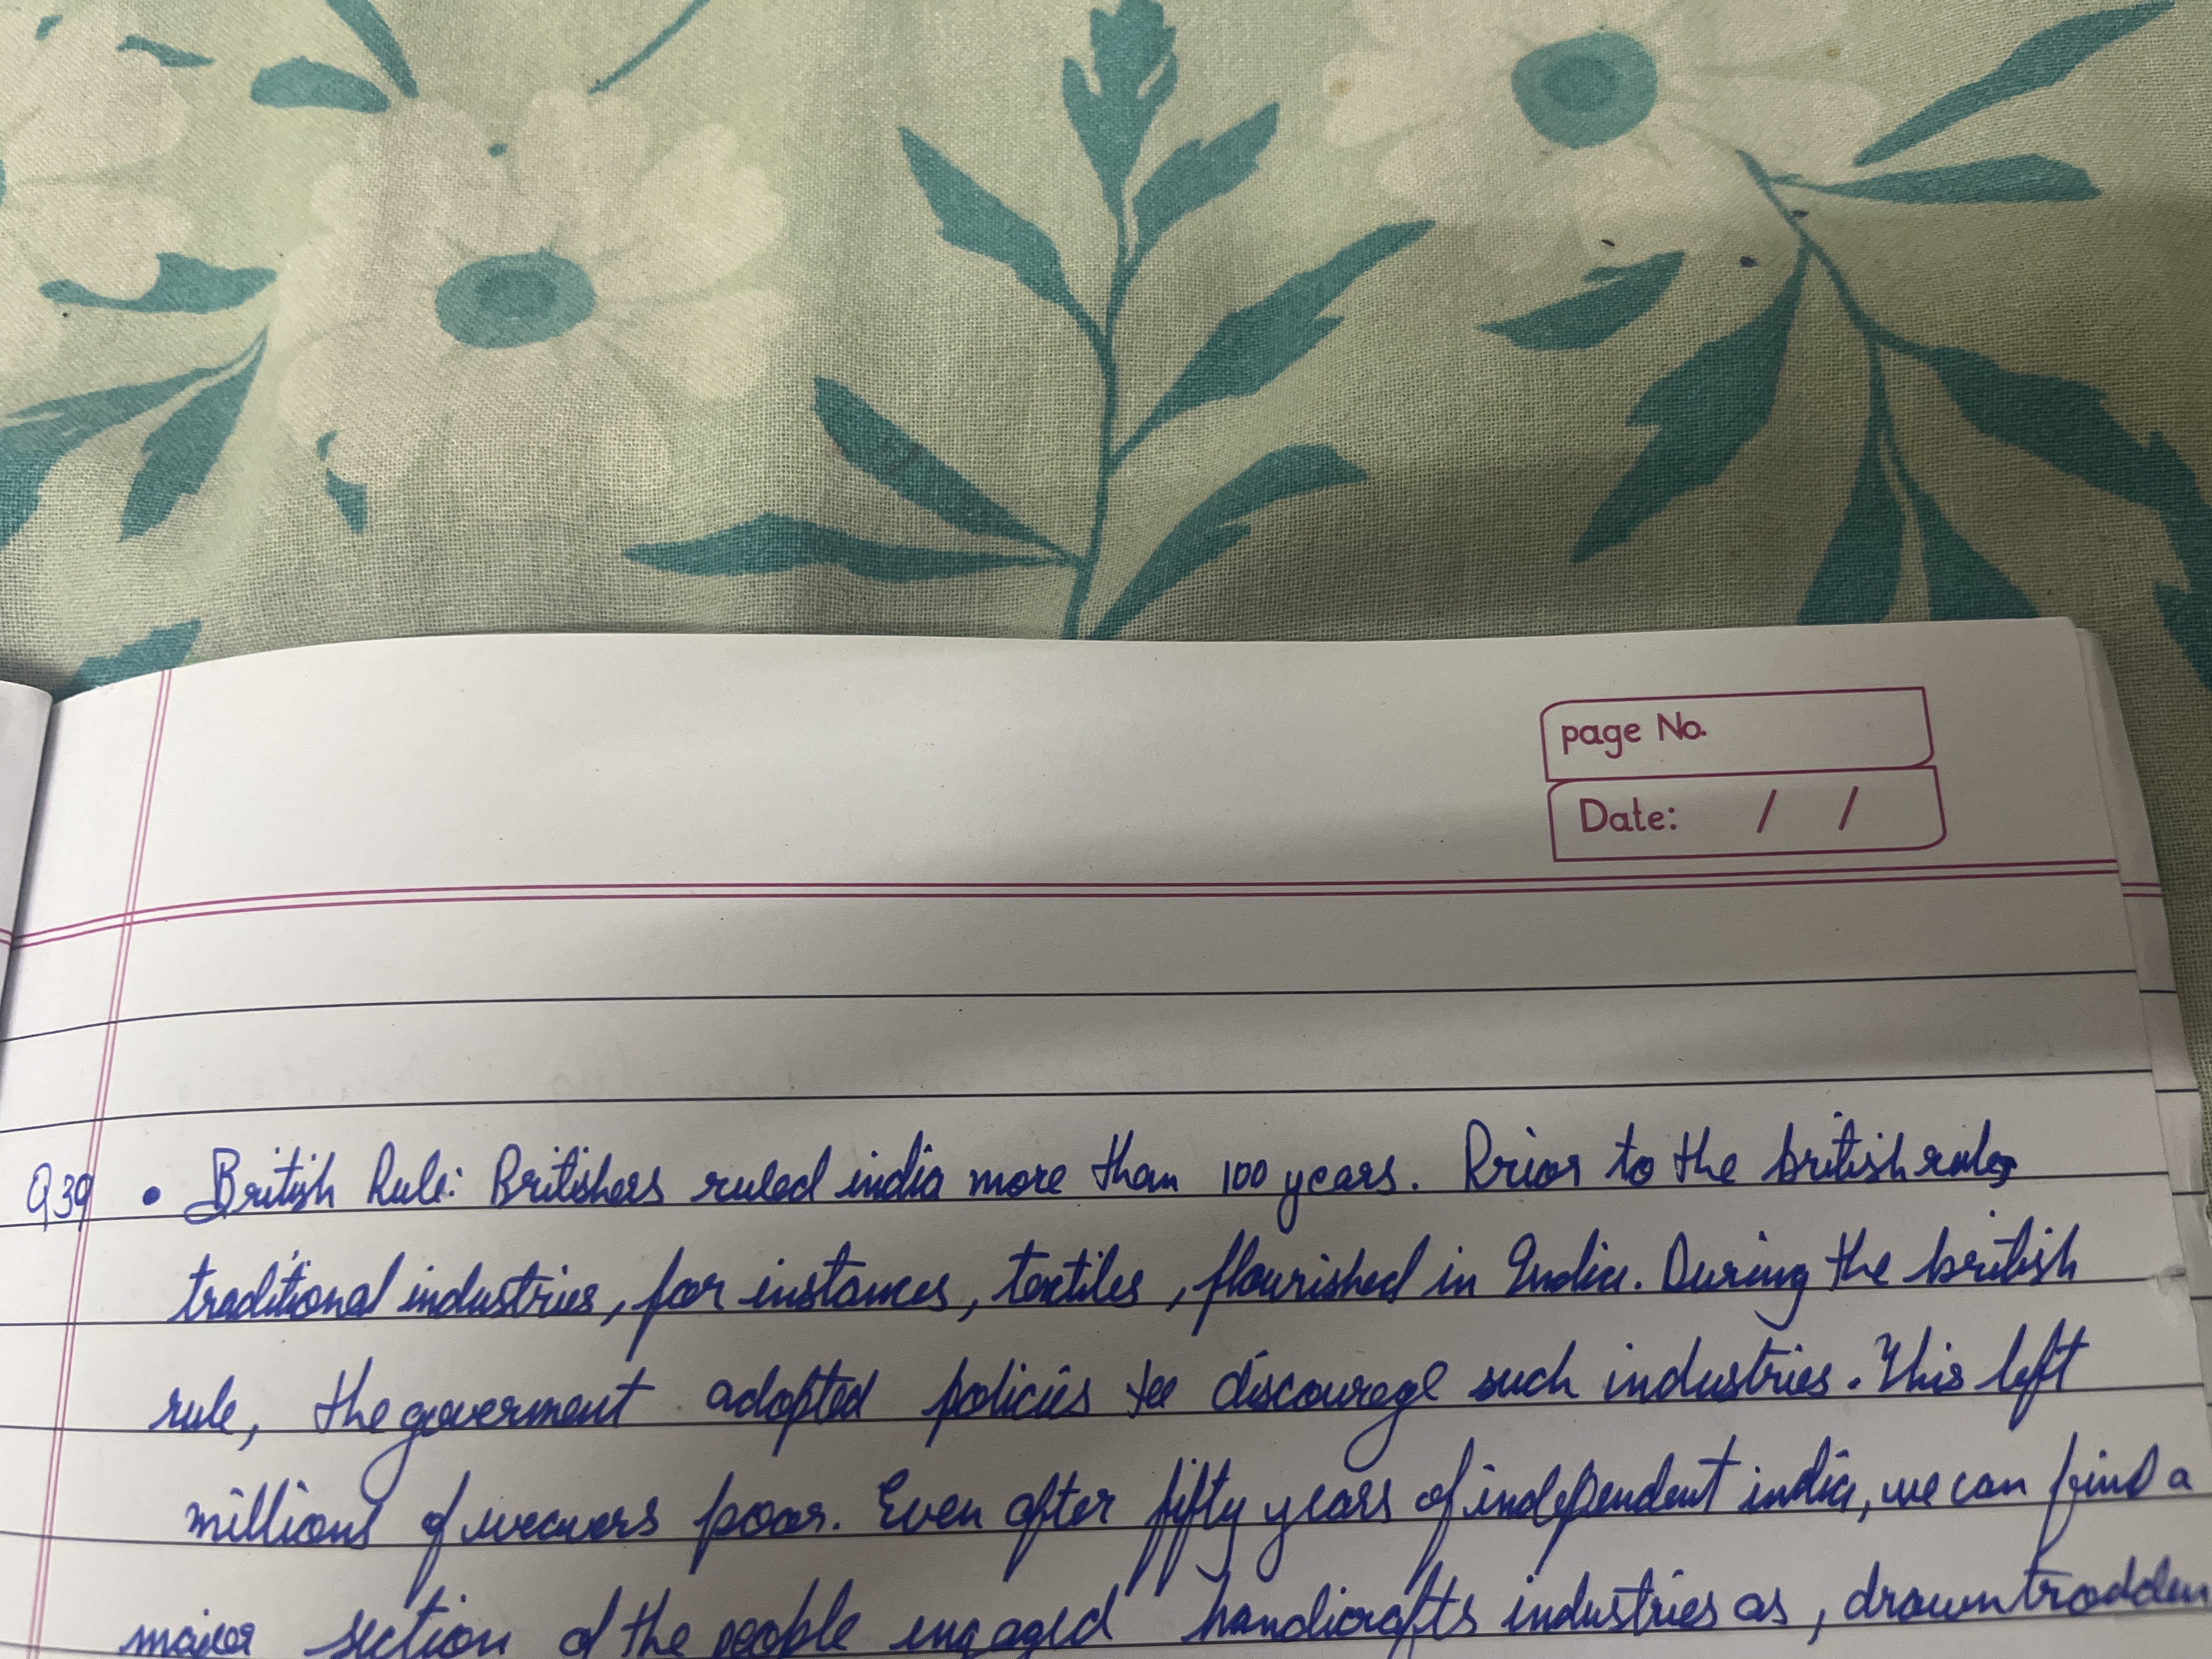 page No.
Date: / /
Q39 • British Rule: Britishers ruled india more than 100 years. Prior to the british rule,
traditional industries, for instances, textiles, flourished in India. During the british
rule, the goverment adopted policies to discourage such industries. This left
millions of weavers poor. Even after fifty years of independent india, we can find a
major section of the people engaged handicrafts industries as, drowntrodden